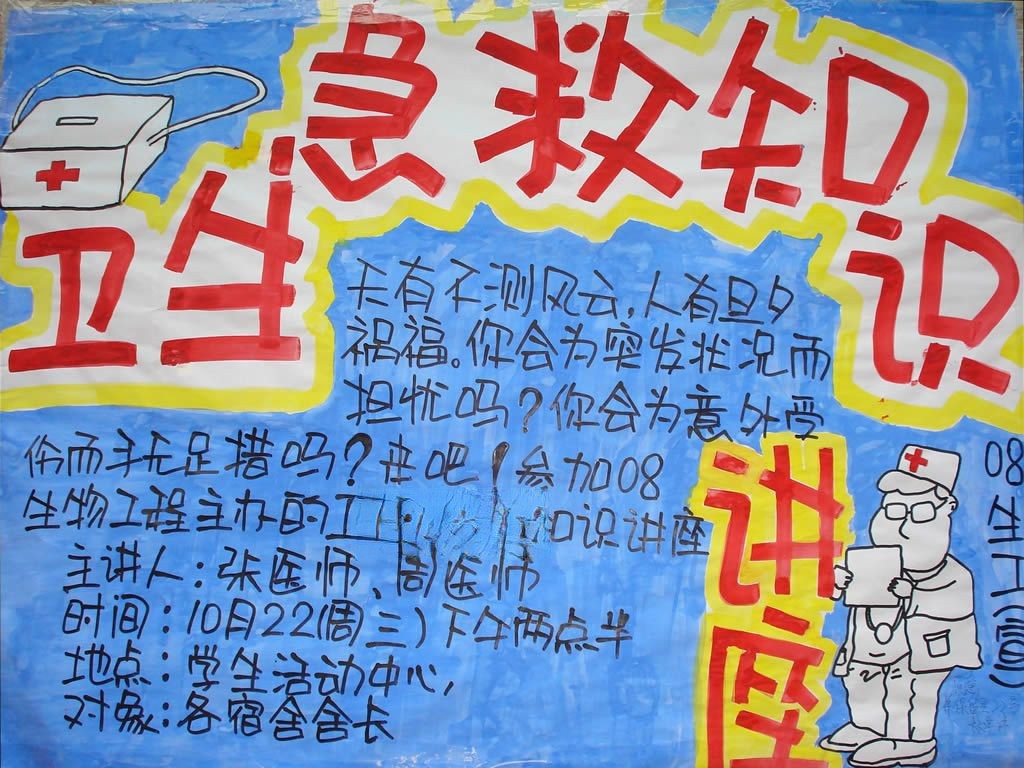 卫生急救知识
讲座
天有不测风云,人有旦夕
祸福。你会为突发状况而
担忧吗?你会为意外受
伤而手无足措吗?来吧!参加08
生物工程主办的卫 知识讲座
主讲人:张医师、周医师
时间:10月22(周三)下午两点半
地点:学生活动中心,
对象:各宿舍舍长
08生工(宣)